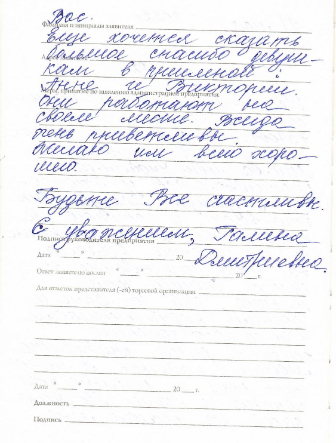 Вас.
Фамилия и инициалы заявителя
Еще хочется сказать
большое спасибо девуш-
кам в приемной:
Анне и Виктории.
Меры, принятые по заявлению администрацией предприятия
Они работают на
своем месте. Всегда
очень приветливы.
Желаю им всего хоро-
шего.
Будьте Все счастливы.
С уважением, Галина
Подпись руководителя предприятия
Дата " " 20 Дмитриевна.
Ответ заявителю послан " " 20 г.
Для отметок представителя (-ей) торговой организации
Дата " " 20 г.
Должность
Подпись